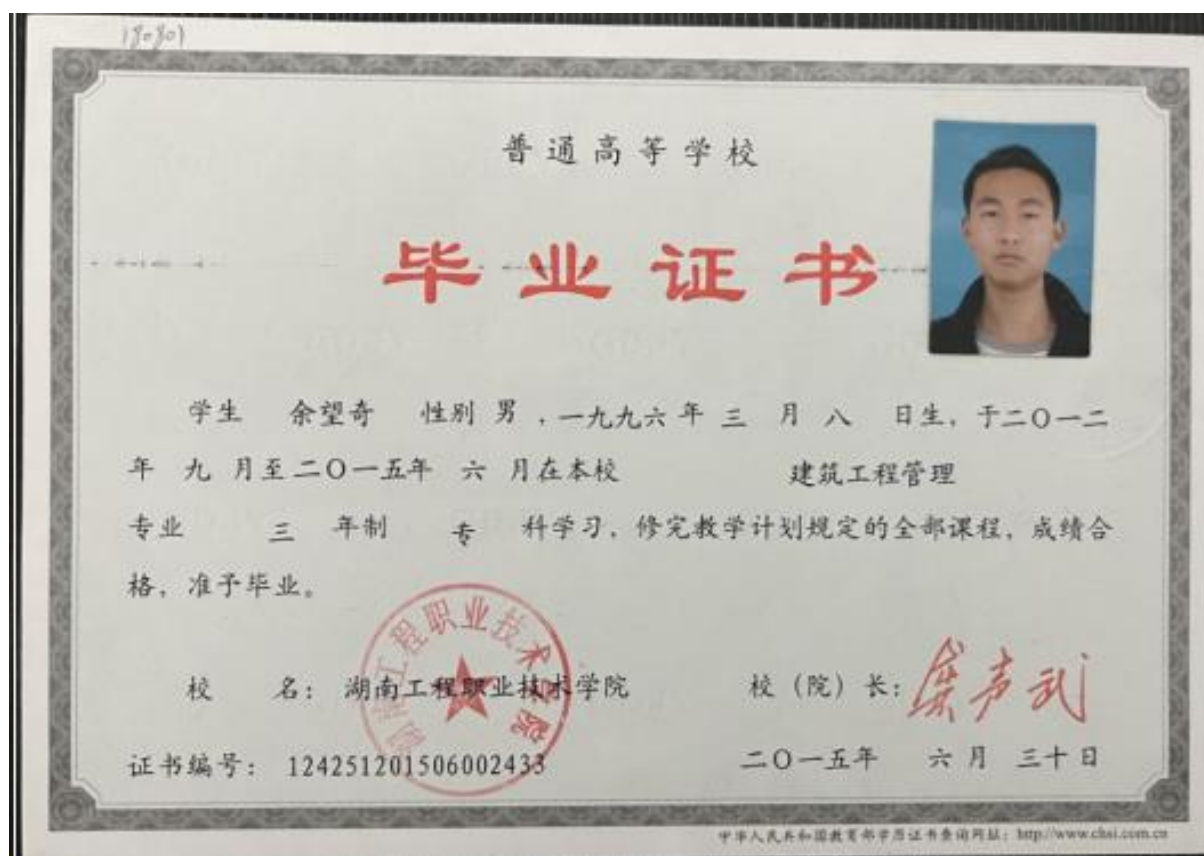 普通高等学校
毕业证书
学生 余望奇 性别 男 ,一九九六 年 三 月 八 日生, 于二〇一二
年 九 月至二〇一五年 六 月在本校 建筑工程管理
专业 三 年制 专 科学习, 修完教学计划规定的全部课程, 成绩合
格, 准予毕业。
湖南工程职业技术学院
校 名: 湖南工程职业技术学院 校 (院) 长:
证书编号: 124251201506002433 二〇一五年 六 月 三十 日
中华人民共和国教育部学历证书查询网址: http://www.chsi.com.cn